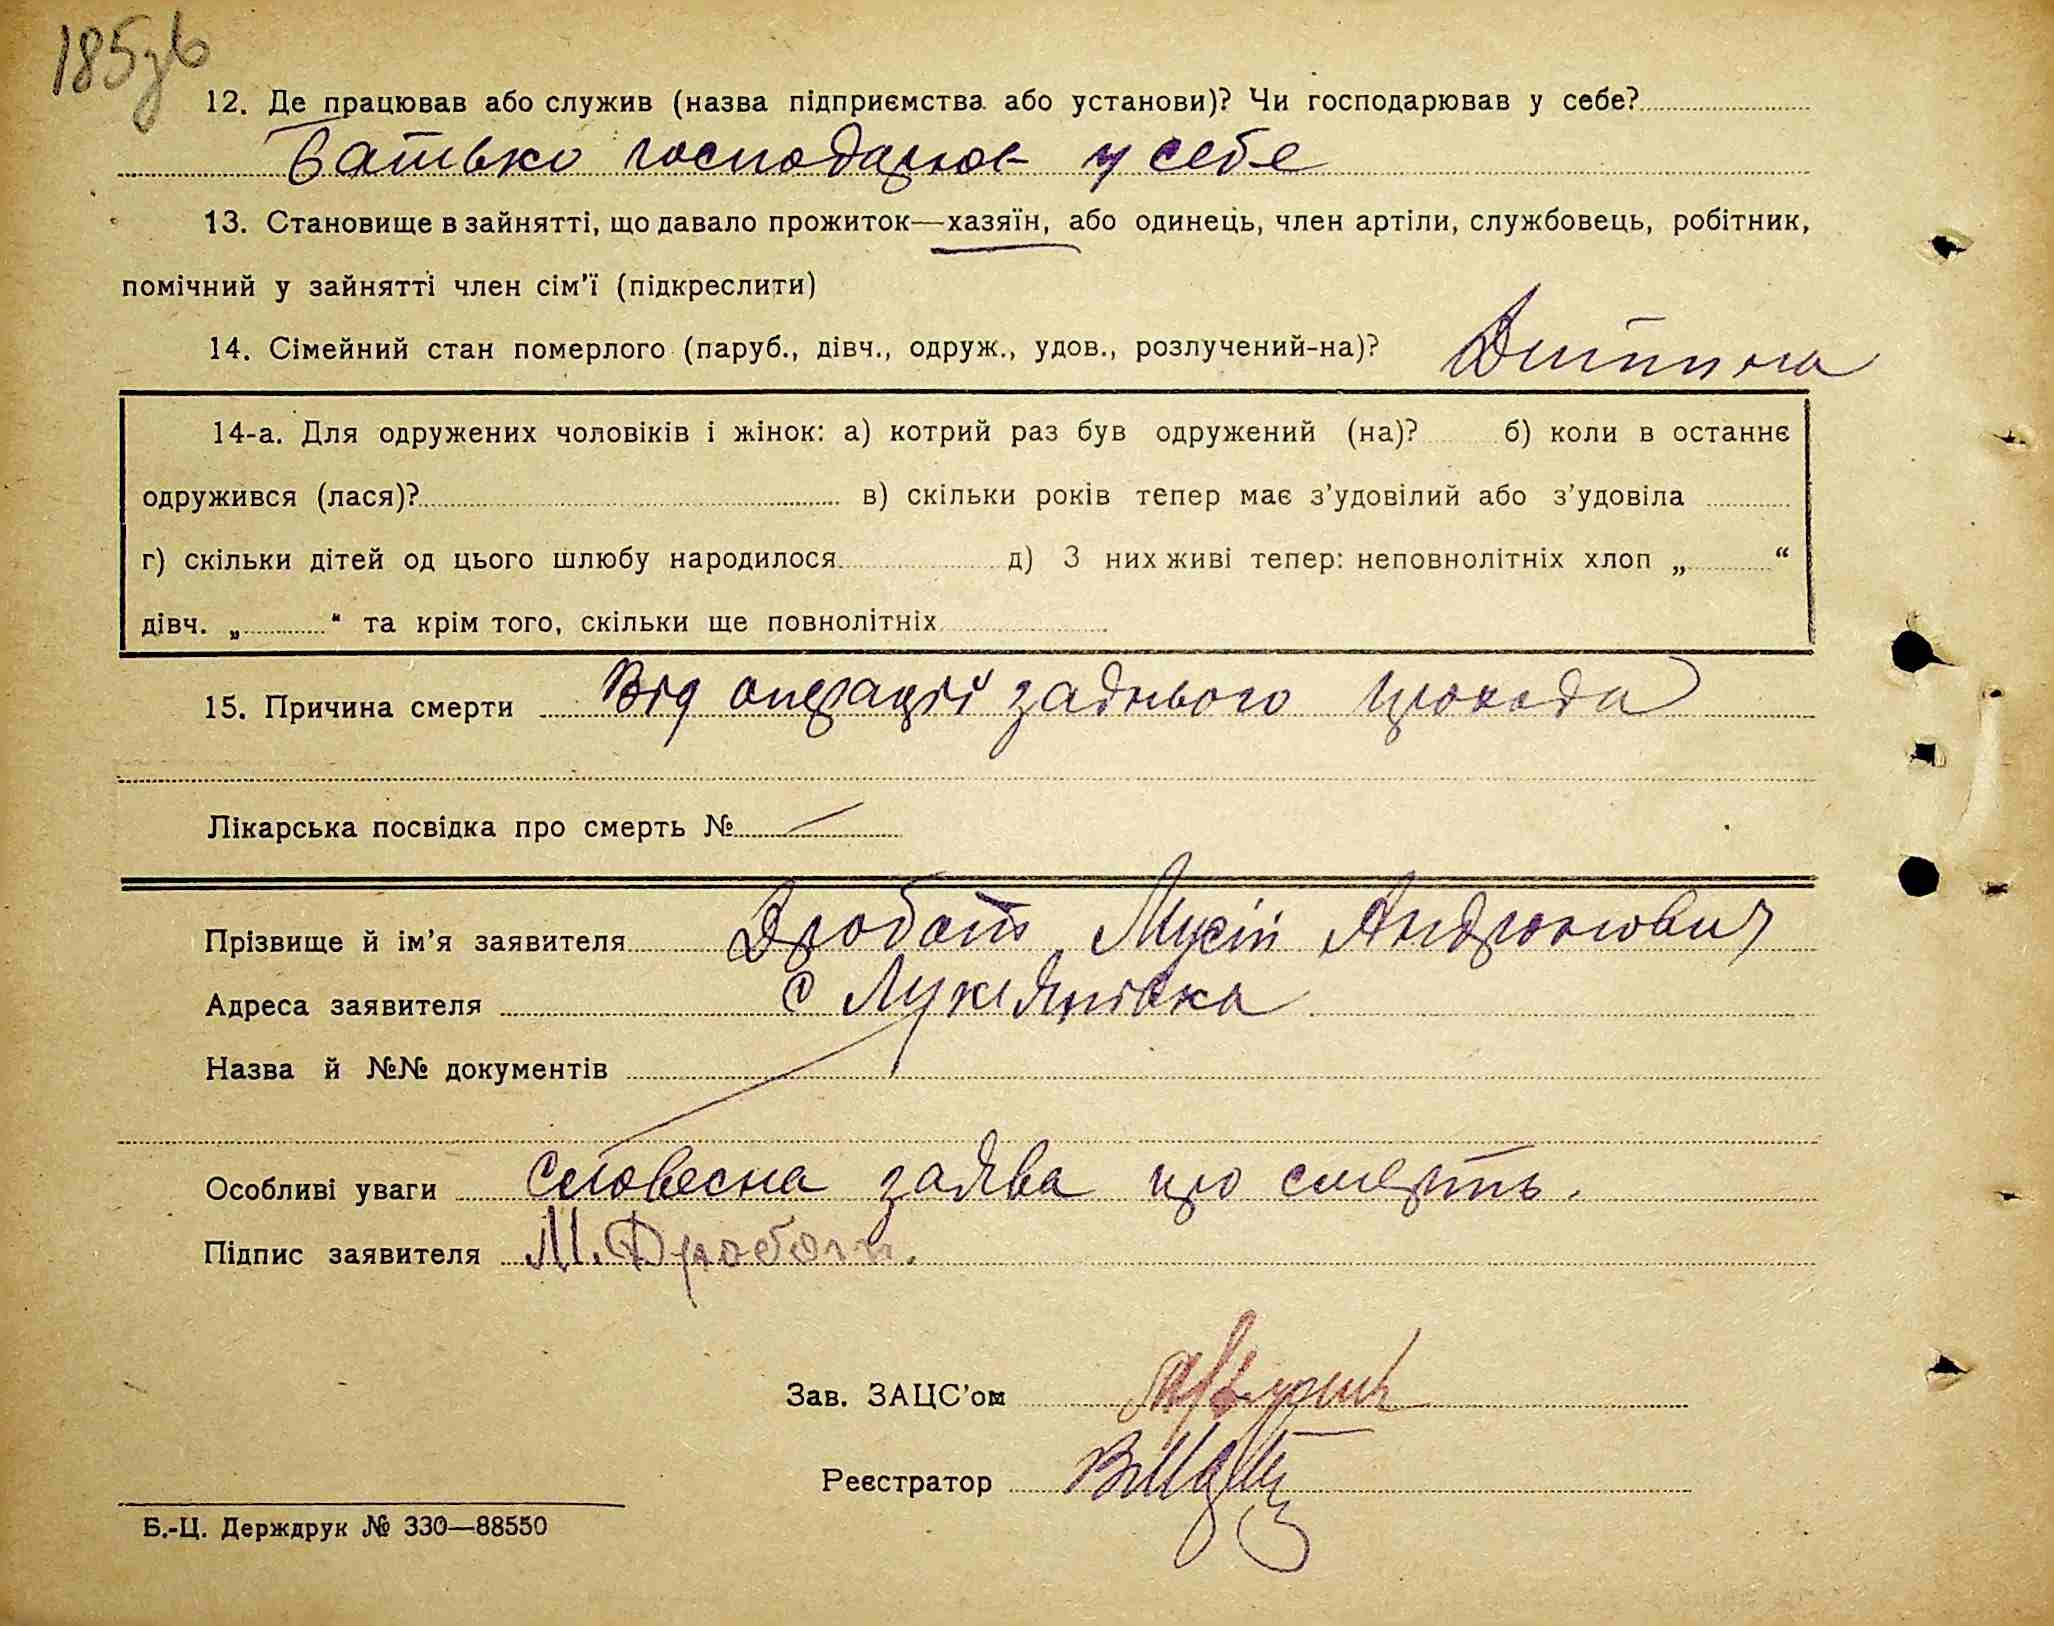 185зв
12. Де працював або служив (назва підприємства або установи)? Чи господарював у себе?
батько господарює у себе
13. Становище в зайнятті, що давало прожиток—хазяїн, або одинець, член артіли, службовець, робітник,
помічний у зайнятті член сім'ї (підкреслити)
14. Сімейний стан померлого (паруб., дівч., одруж., удов., розлучений-на)? Дитина
14-а. Для одружених чоловіків і жінок: а) котрий раз був одружений (на)? б) коли в останнє
одружився (лася)? в) скільки років тепер має з'удовілий або з'удовіла
г) скільки дітей од цього шлюбу народилося д) З них живі тепер: неповнолітніх хлоп „ “
дівч. „ “ та крім того, скільки ще повнолітніх
15. Причина смерти Від операції заднього прохода
Лікарська посвідка про смерть № —
Прізвище й ім'я заявителя Дробот Мусій Андронович
Адреса заявителя с Лукянівка
Назва й №№ документів
Особливі уваги Словесна заява про смерть.
Підпис заявителя М. Дробот.
Зав. ЗАЦС'ом
Реєстратор
Б.-Ц. Держдрук № 330—88550